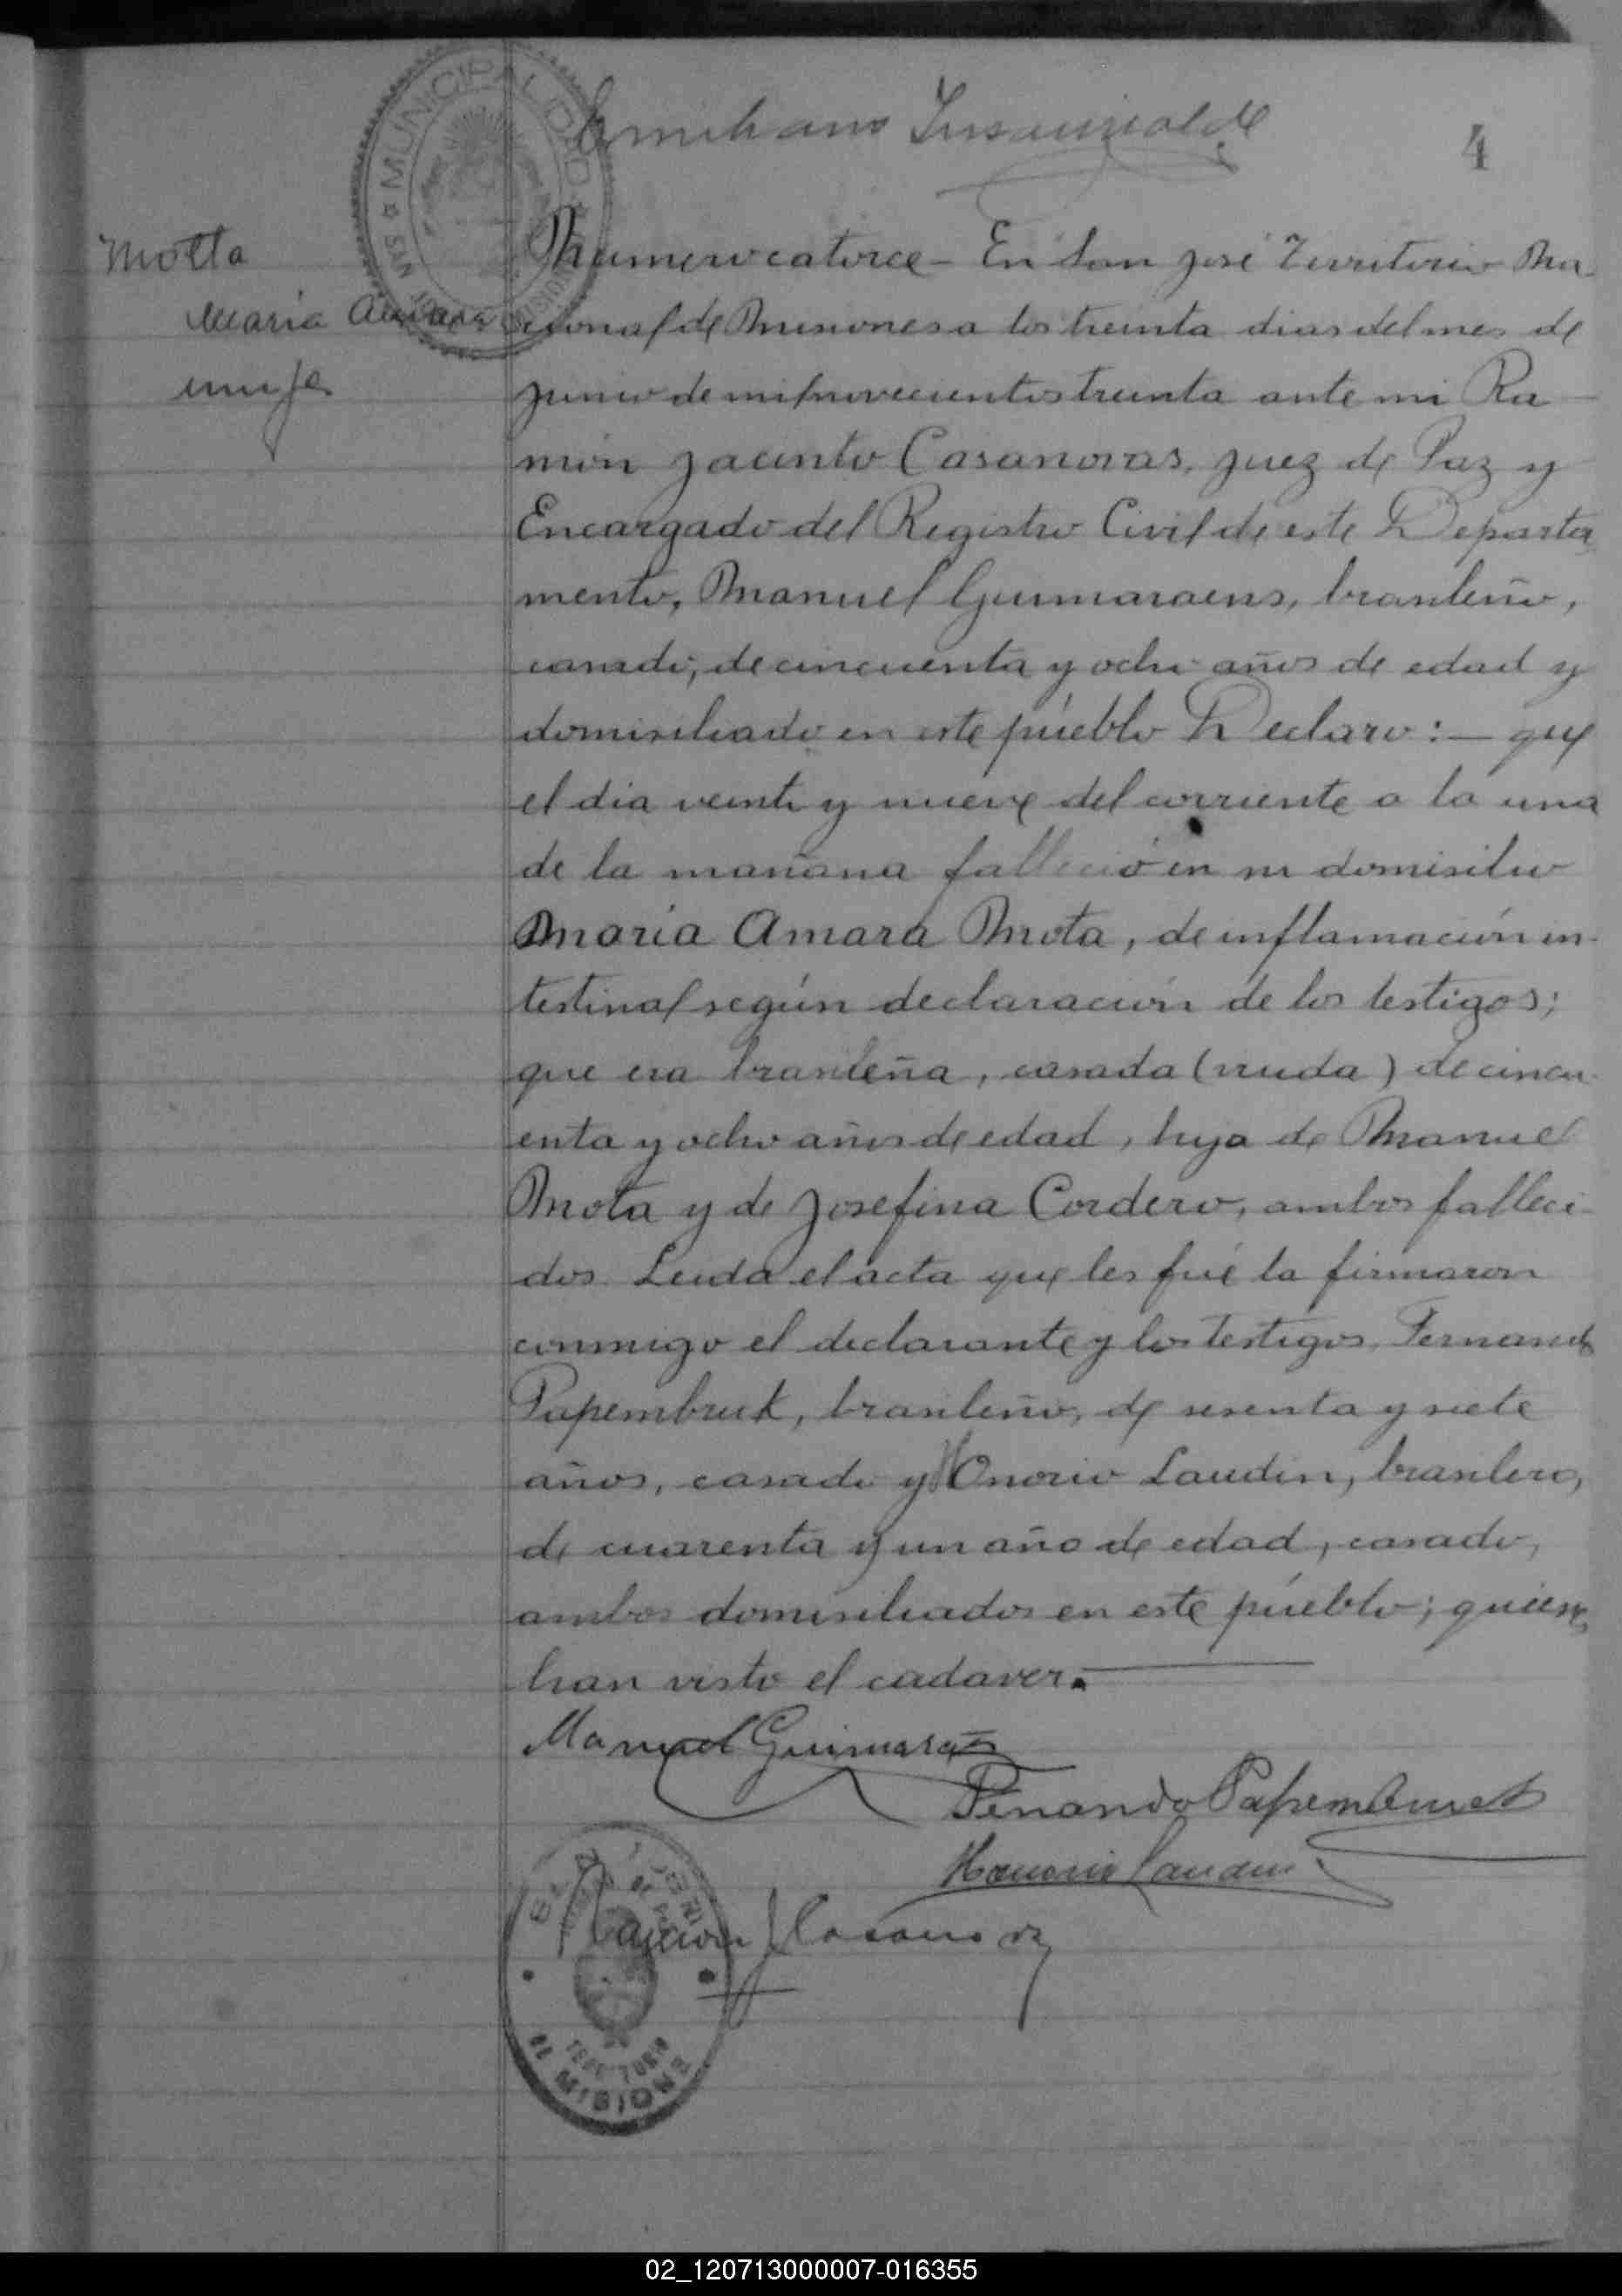 Emiliano Insaurralde
4
Motta
Maria Amara
mujer
MUNICIPALIDAD
SAN JOSE
MISIONES
Numero catorce - En San José Territorio Na-
cional de Misiones a los treinta dias del mes de
junio de mil novecientos treinta ante mi Ra-
món Jacinto Casanovas, Juez de Paz y
Encargado del Registro Civil de este Departa
mento, Manuel Guimaraens, brasileño,
casado, de cincuenta y ocho años de edad y
domisiliado en este púeblo Declaro:- que
el día veinte y nueve del corriente a la una
de la mañana falleció en su domisilio
María Amara Mota, de inflamación in-
testinal según declaración de los testigos;
que era brasileña, casada (viuda) de cincu-
enta y ocho años de edad, hija de Manuel
Mota y de Josefina Cordero, ambos falleci-
dos. Leida el acta que les fué la firmaron
conmigo el declarante y los testigos, Fernando
Papembruk, brasileño, de sesenta y siete
años, casado y Honorio Landin, brasilero,
de cuarenta y un año de edad, casado,
ambos domisiliados en este púeblo; quienes
han visto el cadaver.
Manuel Guimarães
Fenando Papembruck
Honorio Landin
Ramón J Casanovas
MISIONES
02_120713000007-016355